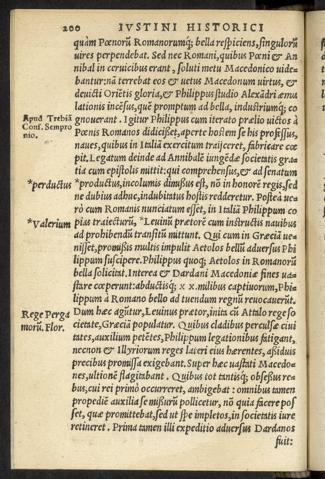 200 IVSTINI HISTORICI
quàm Pœnorũ Romanorumq; bella respiciens, singulorũ
uires perpendebat. Sed nec Romani, quibus Pœni & An
nibal in ceruicibus erant, soluti metu Macedonico uide-
bantur: nã terrebat eos & uetus Macedonum uirtus, &
deuicti Oriẽtis gloria, & Philippus studio Alexãdri æmu
lationis incẽsus, quẽ promptum ad bella, industriumq; co
Apud Trebiã
Cons. Sempro
nio.
gnouerant. Igitur Philippus cum iterato prælio uictos à
Pœnis Romanos didicisset, aperte hostem se his professus,
naues, quibus in Italiã exercitum traijceret, fabricare cœ
pit. Legatum deinde ad Annibalẽ iungẽdæ societatis gra-
tia cum epistolis mittit: qui comprehensus, & ad senatum
*perductus
*productus, incolumis dimissus est, nõ in honorẽ regis, sed
ne dubius adhuc, indubitatus hostis redderetur. Postea ue-
rò cum Romanis nunciatum esset, in Italiã Philippum co
*Valerium
pias traiecturũ, *Leuinũ prætorẽ cum instructis nauibus
ad prohibendũ transitũ mittunt. Qui cum in Græciã ue-
nisset, promissis multis impulit Aetolos bellũ aduersus Phi
lippum suscipere. Philippus quoq; Aetolos in Romanorũ
bella solicitat. Interea & Dardani Macedoniæ fines ua-
stare cœperunt: abductisq; x x. milibus captiuorum, Phi-
lippum à Romano bello ad tuendum regnũ reuocauerũt.
Rege Perga
morũ. Flor.
Dum hæc agũtur, Leuinus prætor, inita cũ Attalo rege so
cietate, Græciã populatur. Quibus cladibus perculsæ ciui
tates, auxilium petẽtes, Philippum legationibus fatigant,
necnon & Illyriorum reges lateri eius hærentes, aßiduis
precibus promissa exigebant. Super hæc uastati Macedo-
nes, ultionẽ flagitabant. Quibus tot tantisq; obsessus re-
bus, cui rei primò occurreret, ambigebat: omnibus tamen
propediẽ auxilia se missurũ pollicetur, nõ quia facere pos
set, quæ promittebat, sed ut spe impletos, in societatis iure
retineret. Prima tamen illi expeditio aduersus Dardanos
fuit: